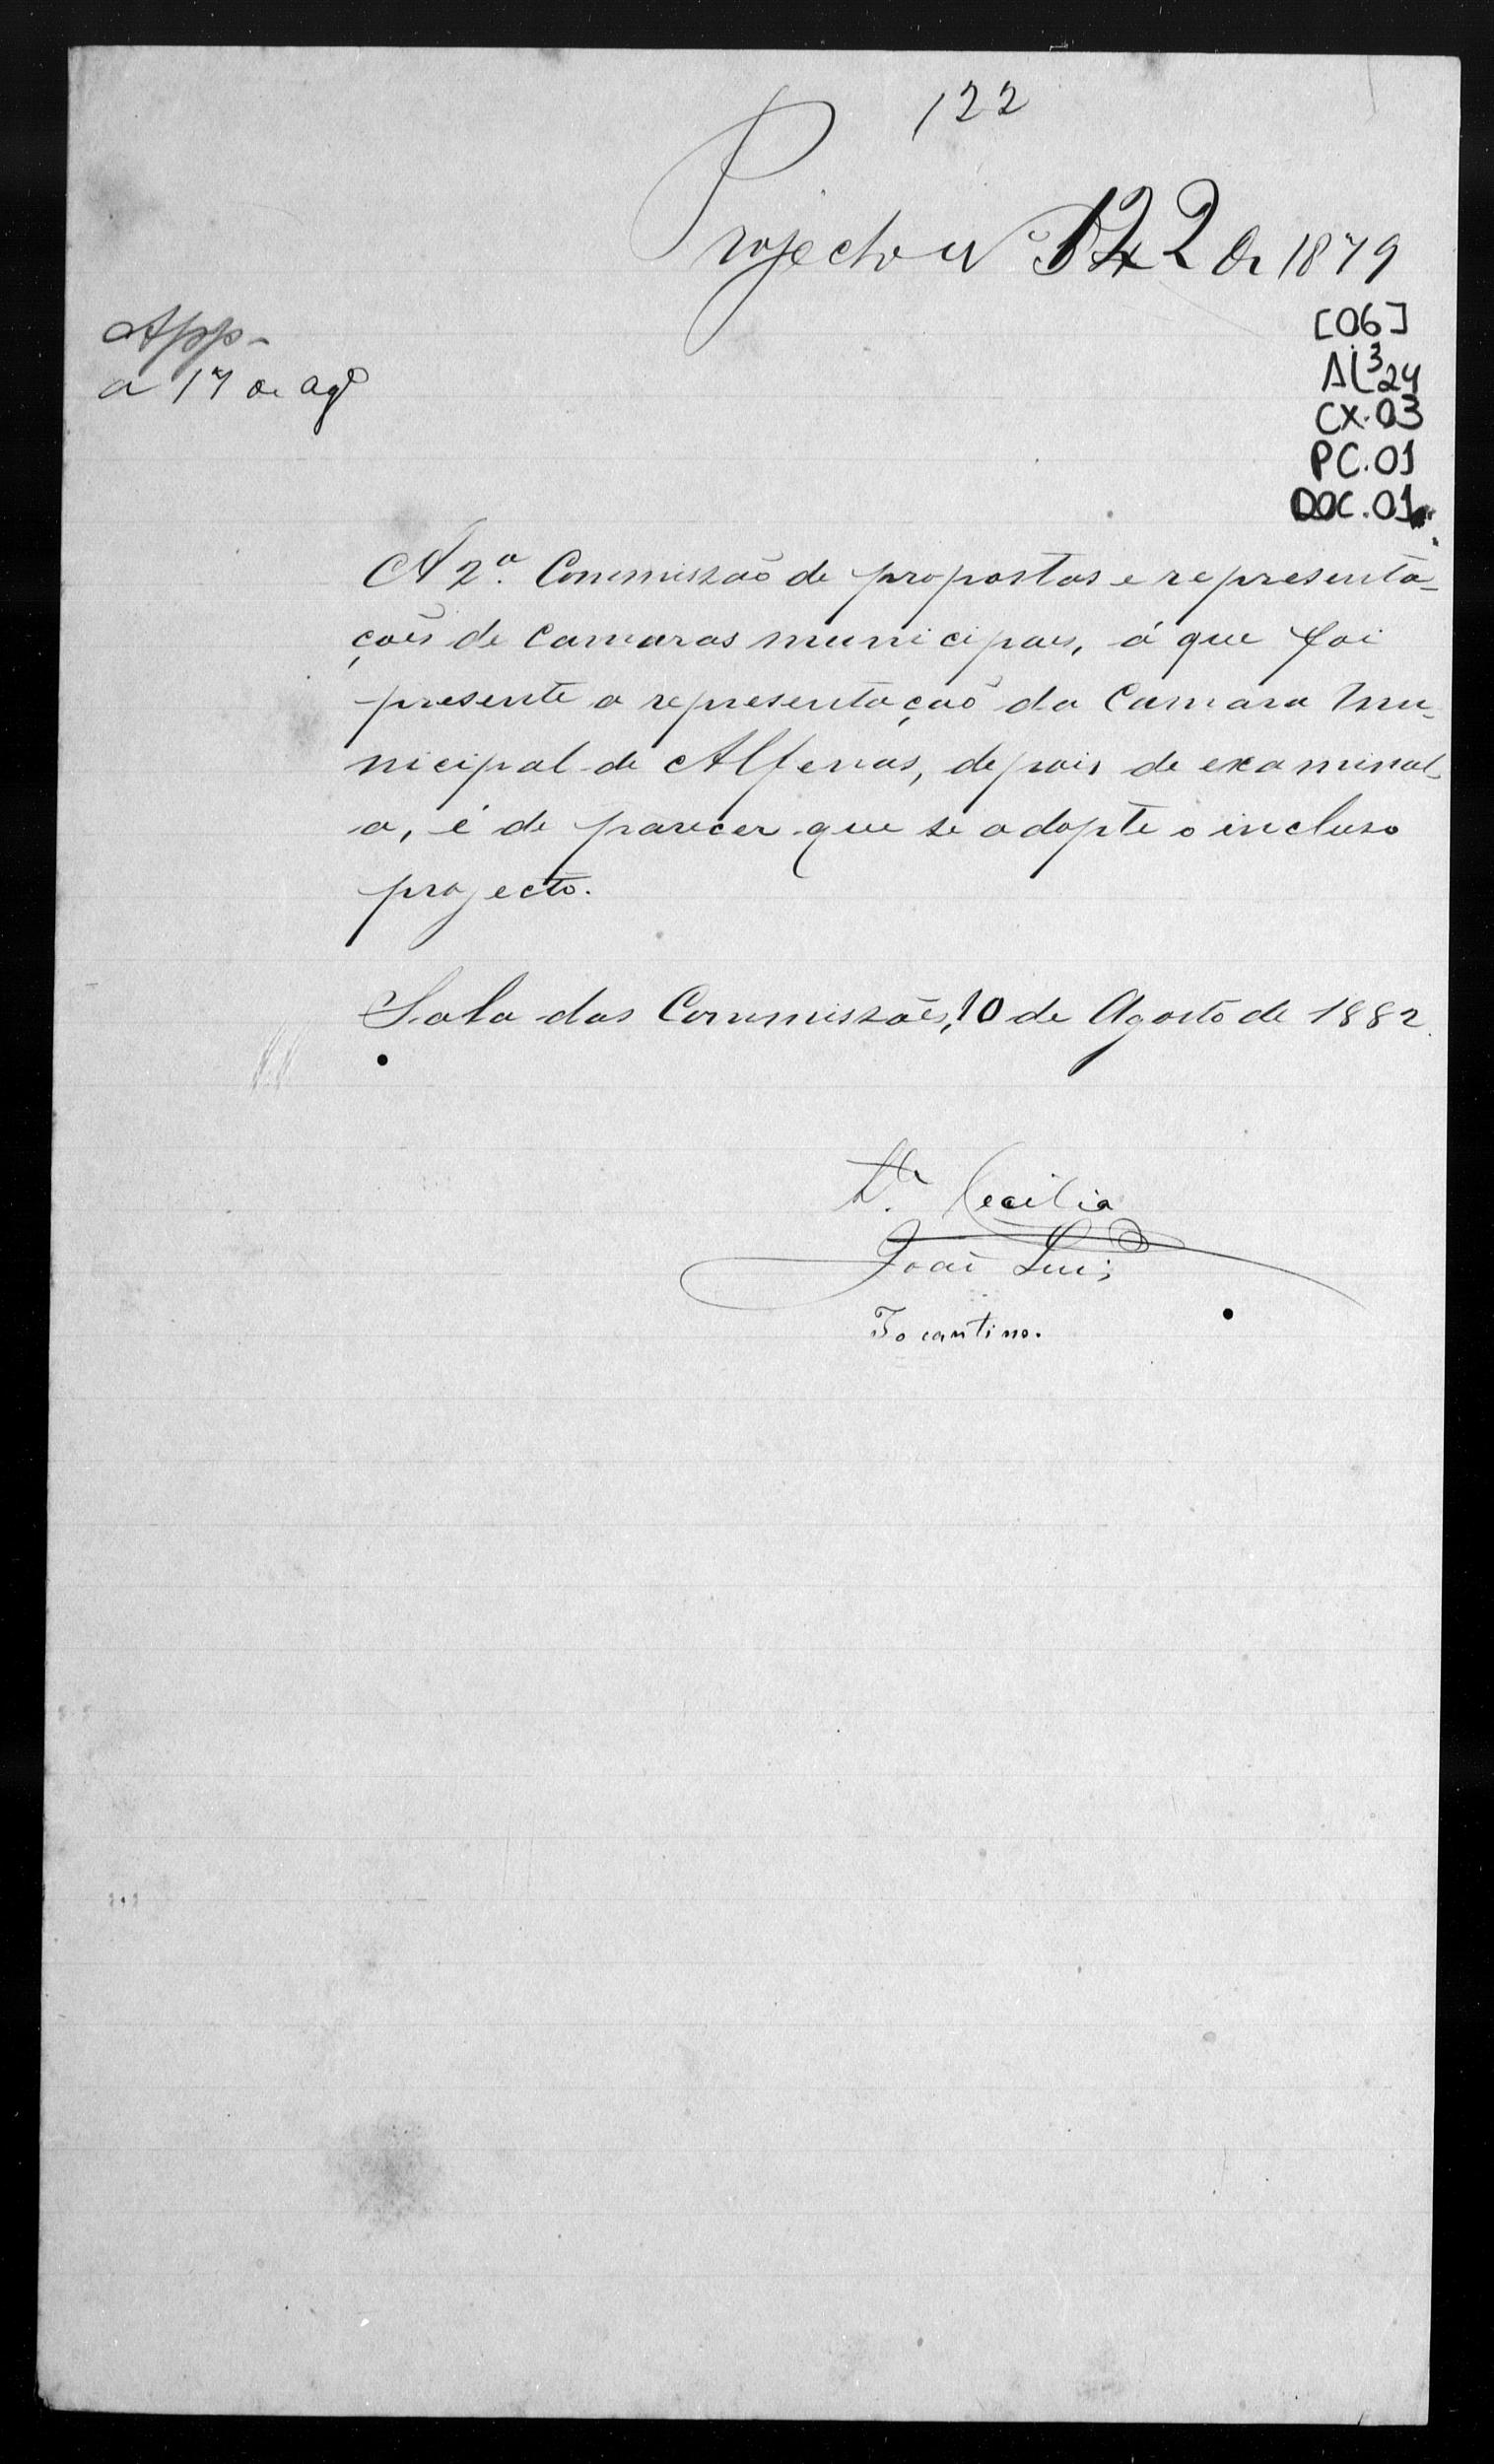 122
Projecto N.º 122 de 1879
App.
a 17 de agº
[06]
AL³24
CX.03
PC.01
DOC.01
A 2ª. Commissaõ de propostas e representa-
çoẽs de Camaras municipaes, á que foi
presente a representaçaõ da Camara Mu-
nicipal de Alfenas, depois de examinal-
a, é de parecer que se adopte o incluso
projecto.
Sala das Commissoẽs, 10 de Agosto de 1882.
Sta. Cecilia
Joaõ Luis
Tocantins.